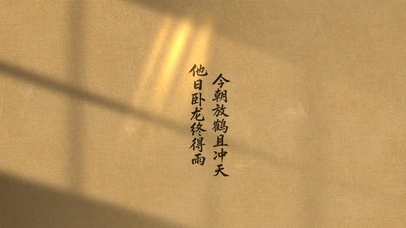 今朝放鹤且冲天
他日卧龙终得雨